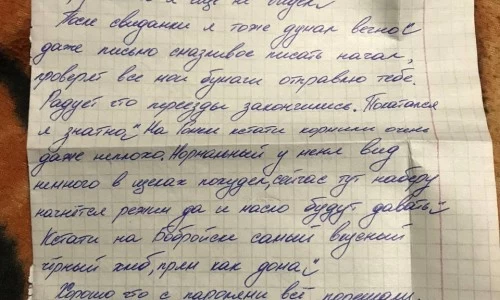 я ещё не видел,
После свиданки я тоже думал вечно"
даже письмо сназивое писать начал,
проверят все мои бумаги отправлю тебе.
Радует что переезды закончились. Покатался
я знатно" На Гонки кстати кормили очень
даже неплохо. Нормальный у меня вид
немного в щеках похудел, сейчас тут наберу
начнётся режим да и масло будут давать"
Кстати на Бобруйске самый вкусный
чёрный хлеб, прям как дома"
Хорошо что с паролями всё порешали